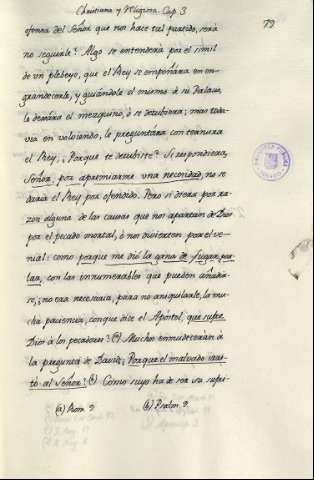 Christiana y Mistica Cap. 3
73
ofensa del Señor que nos hace tal partido, será
no seguirle? Algo se entenderá por el simil
de vn plebeyo, que el Rey se empeñára en en-
grandecerle, y guiándole el mismo á su Palacio,
le dexára el mezquino, ó se desviára; mas toda-
via en volviendo, le preguntára con ternura
el Rey, ¿Porque te desviste? Si respondiera,
Señor, por apremiarme una necesidad, no se
daria el Rey por ofendido. Pero si diera por ra-
zon alguna de las causas que nos apartan de Dios
por el pecado mortal, ó nos divierten por el ve-
nial: como porque me dió la gana de
con las innumerables que pueden añadir-
se, ¿no era necesaria, para no aniquilarle, la mu-
cha paciencia, conque dice el Apóstol, que sufre
Dios á los pecadores? (a) Muchos enmudecerán á
la pregunta de David; Porque el malvado irri-
tó al Señor? (b) Como suyo ha de ser su
(a) Rom. 9. (b) Psalm. 9.